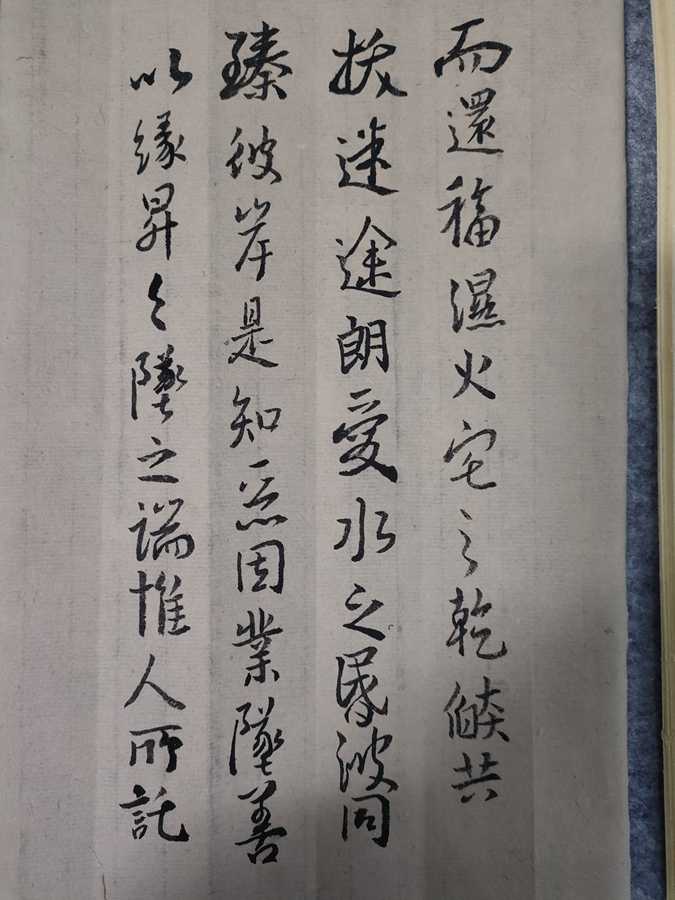 而還福濕火宅之乾燄共
拔迷途朗愛水之昬波同
臻彼岸是知惡因業墜善
以緣昇々墜之端惟人所託